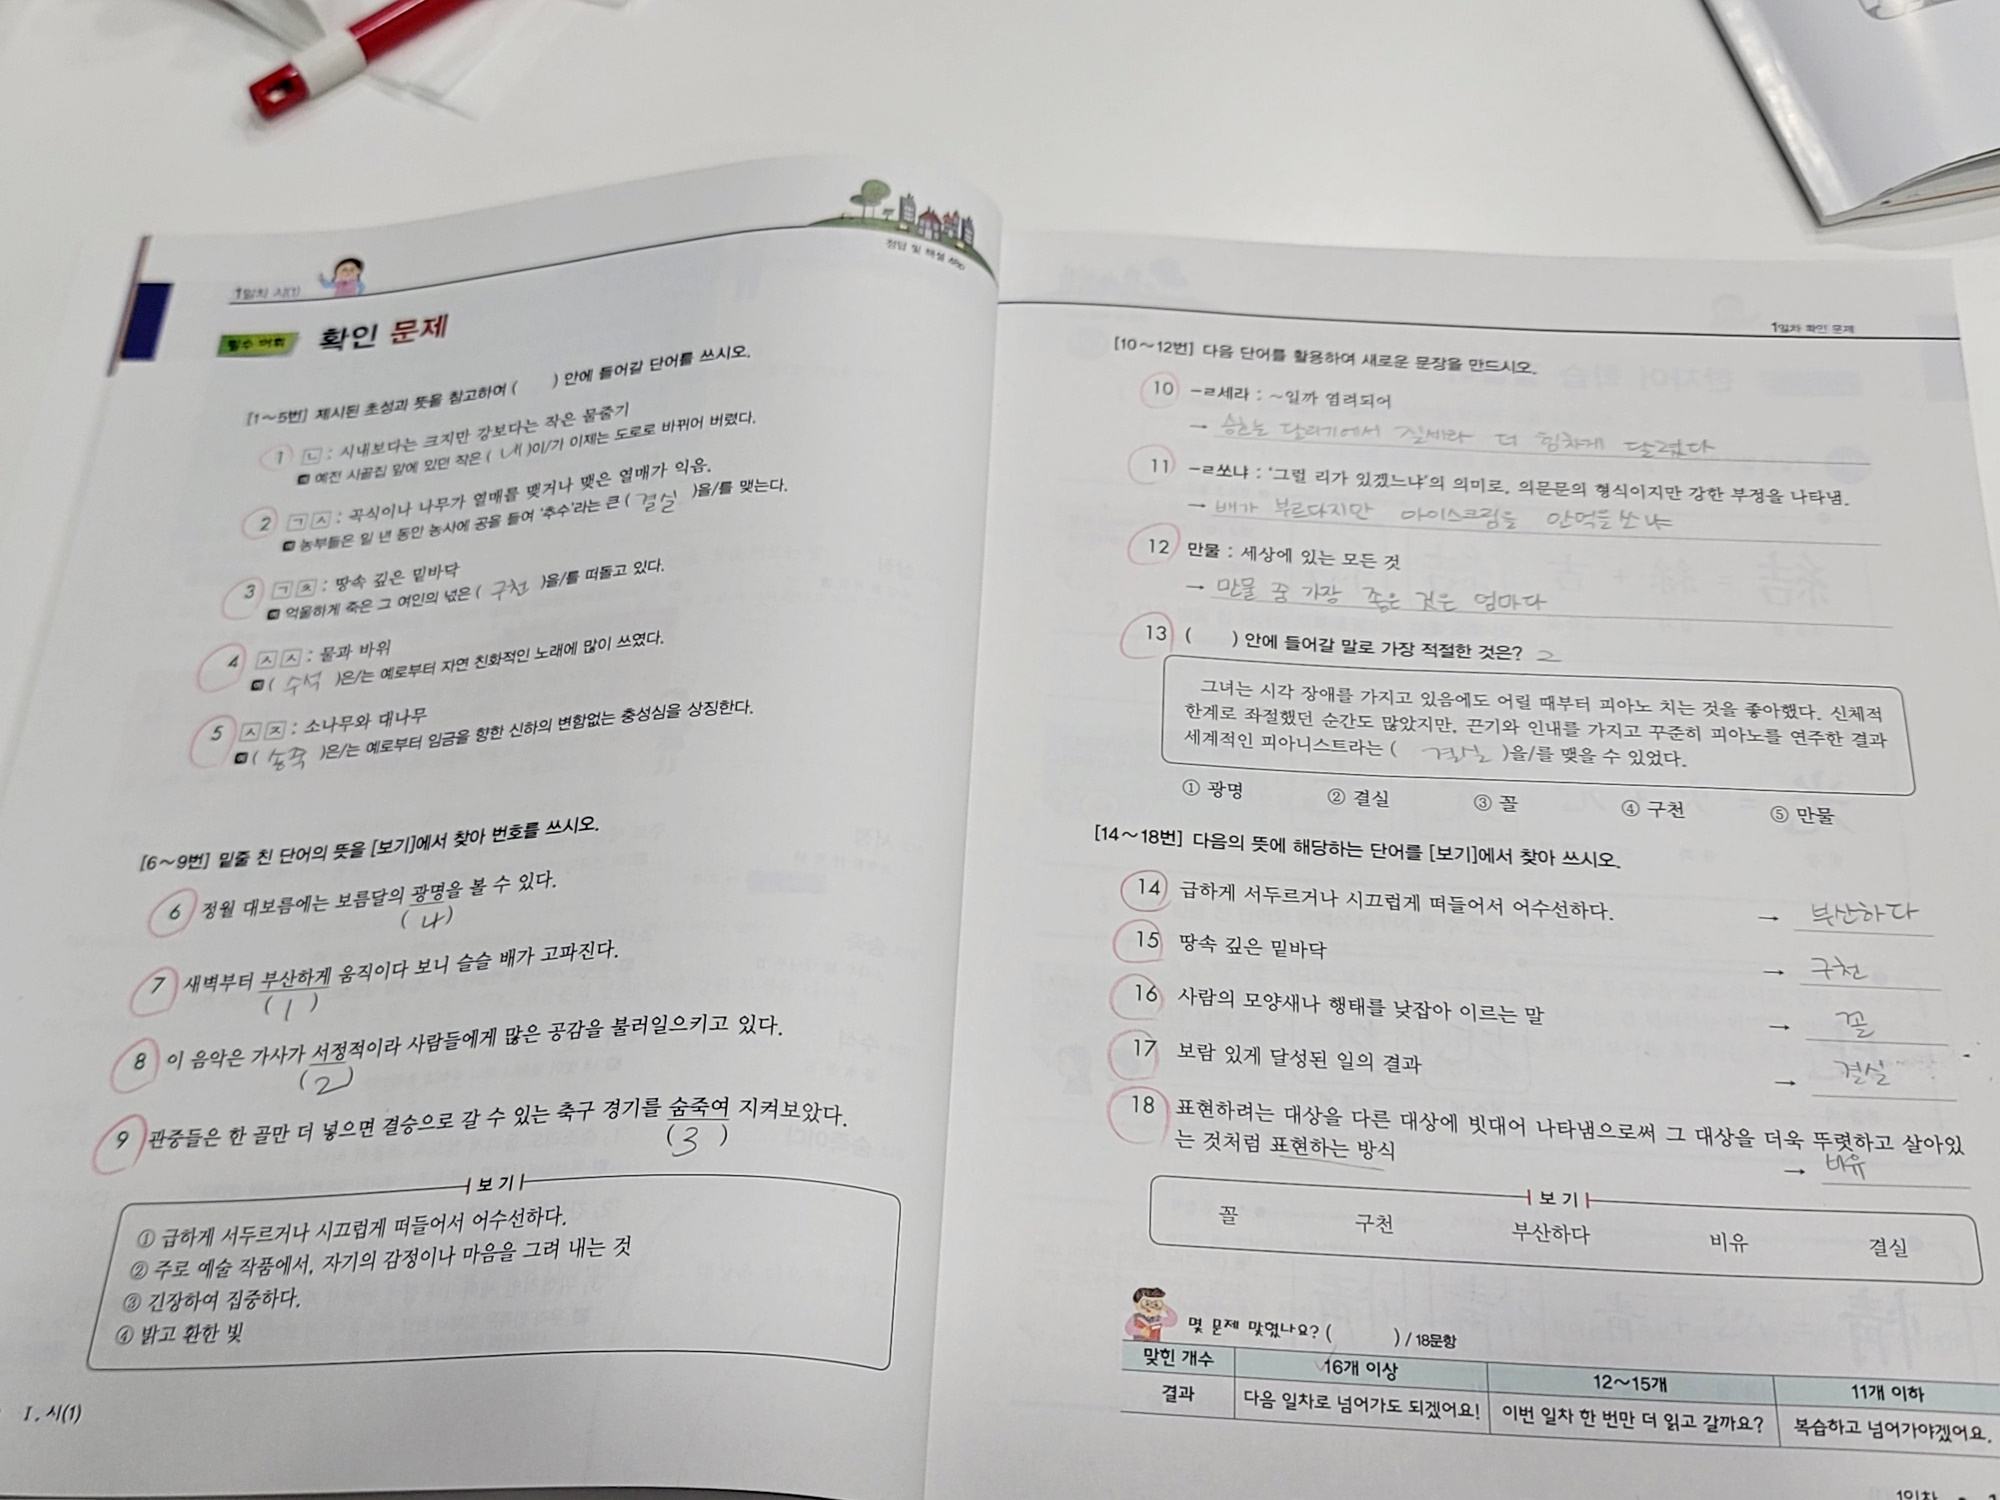 1일차 시(1)
정답 및 해설
필수 어휘 확인 문제
[1~5번] 제시된 초성과 뜻을 참고하여 ( ) 안에 들어갈 단어를 쓰시오.
1 ㄴ : 시내보다는 크지만 강보다는 작은 물줄기
예 예전 시골집 앞에 있던 작은 ( 내 )이/가 이제는 도로로 바뀌어 버렸다.
2 ㄱㅅ : 곡식이나 나무가 열매를 맺거나 맺은 열매가 익음.
예 농부들은 일 년 동안 농사에 공을 들여 '추수'라는 큰 ( 결실 )을/를 맺는다.
3 ㄱㅊ : 땅속 깊은 밑바닥
예 억울하게 죽은 그 여인의 넋은 ( 구천 )을/를 떠돌고 있다.
4 ㅅㅅ : 물과 바위
예 ( 수석 )은/는 예로부터 자연 친화적인 노래에 많이 쓰였다.
5 ㅅㅈ : 소나무와 대나무
예 ( 송죽 )은/는 예로부터 임금을 향한 신하의 변함없는 충성심을 상징한다.
[6~9번] 밑줄 친 단어의 뜻을 [보기]에서 찾아 번호를 쓰시오.
6 정월 대보름에는 보름달의 광명을 볼 수 있다.
( 4 )
7 새벽부터 부산하게 움직이다 보니 슬슬 배가 고파진다.
( 1 )
8 이 음악은 가사가 서정적이라 사람들에게 많은 공감을 불러일으키고 있다.
( 2 )
9 관중들은 한 골만 더 넣으면 결승으로 갈 수 있는 축구 경기를 숨죽여 지켜보았다.
( 3 )
보기
① 급하게 서두르거나 시끄럽게 떠들어서 어수선하다.
② 주로 예술 작품에서, 자기의 감정이나 마음을 그려 내는 것
③ 긴장하여 집중하다.
④ 밝고 환한 빛
Ⅰ. 시(1)
1일차 확인 문제
[10~12번] 다음 단어를 활용하여 새로운 문장을 만드시오.
10 -ㄹ세라 : ~일까 염려되어
→ 승현는 달리기에서 질세라 더 힘차게 달렸다
11 -ㄹ쏘냐 : '그럴 리가 있겠느냐'의 의미로, 의문문의 형식이지만 강한 부정을 나타냄.
→ 배가 부르다지만 아이스크림을 안먹을쏘냐
12 만물 : 세상에 있는 모든 것
→ 만물 중 가장 좋은 것은 엄마다
13 ( ) 안에 들어갈 말로 가장 적절한 것은? 2
그녀는 시각 장애를 가지고 있음에도 어릴 때부터 피아노 치는 것을 좋아했다. 신체적
한계로 좌절했던 순간도 많았지만, 끈기와 인내를 가지고 꾸준히 피아노를 연주한 결과
세계적인 피아니스트라는 ( 결실 )을/를 맺을 수 있었다.
① 광명 ② 결실 ③ 꼴 ④ 구천 ⑤ 만물
[14~18번] 다음의 뜻에 해당하는 단어를 [보기]에서 찾아 쓰시오.
14 급하게 서두르거나 시끄럽게 떠들어서 어수선하다. → 부산하다
15 땅속 깊은 밑바닥 → 구천
16 사람의 모양새나 행태를 낮잡아 이르는 말 → 꼴
17 보람 있게 달성된 일의 결과 → 결실
18 표현하려는 대상을 다른 대상에 빗대어 나타냄으로써 그 대상을 더욱 뚜렷하고 살아있
는 것처럼 표현하는 방식 → 비유
보기
꼴 구천 부산하다 비유 결실
몇 문제 맞혔나요? ( ) / 18문항
맞힌 개수 16개 이상 12~15개 11개 이하
결과 다음 일차로 넘어가도 되겠어요! 이번 일차 한 번만 더 읽고 갈까요? 복습하고 넘어가야겠어요.
1일차